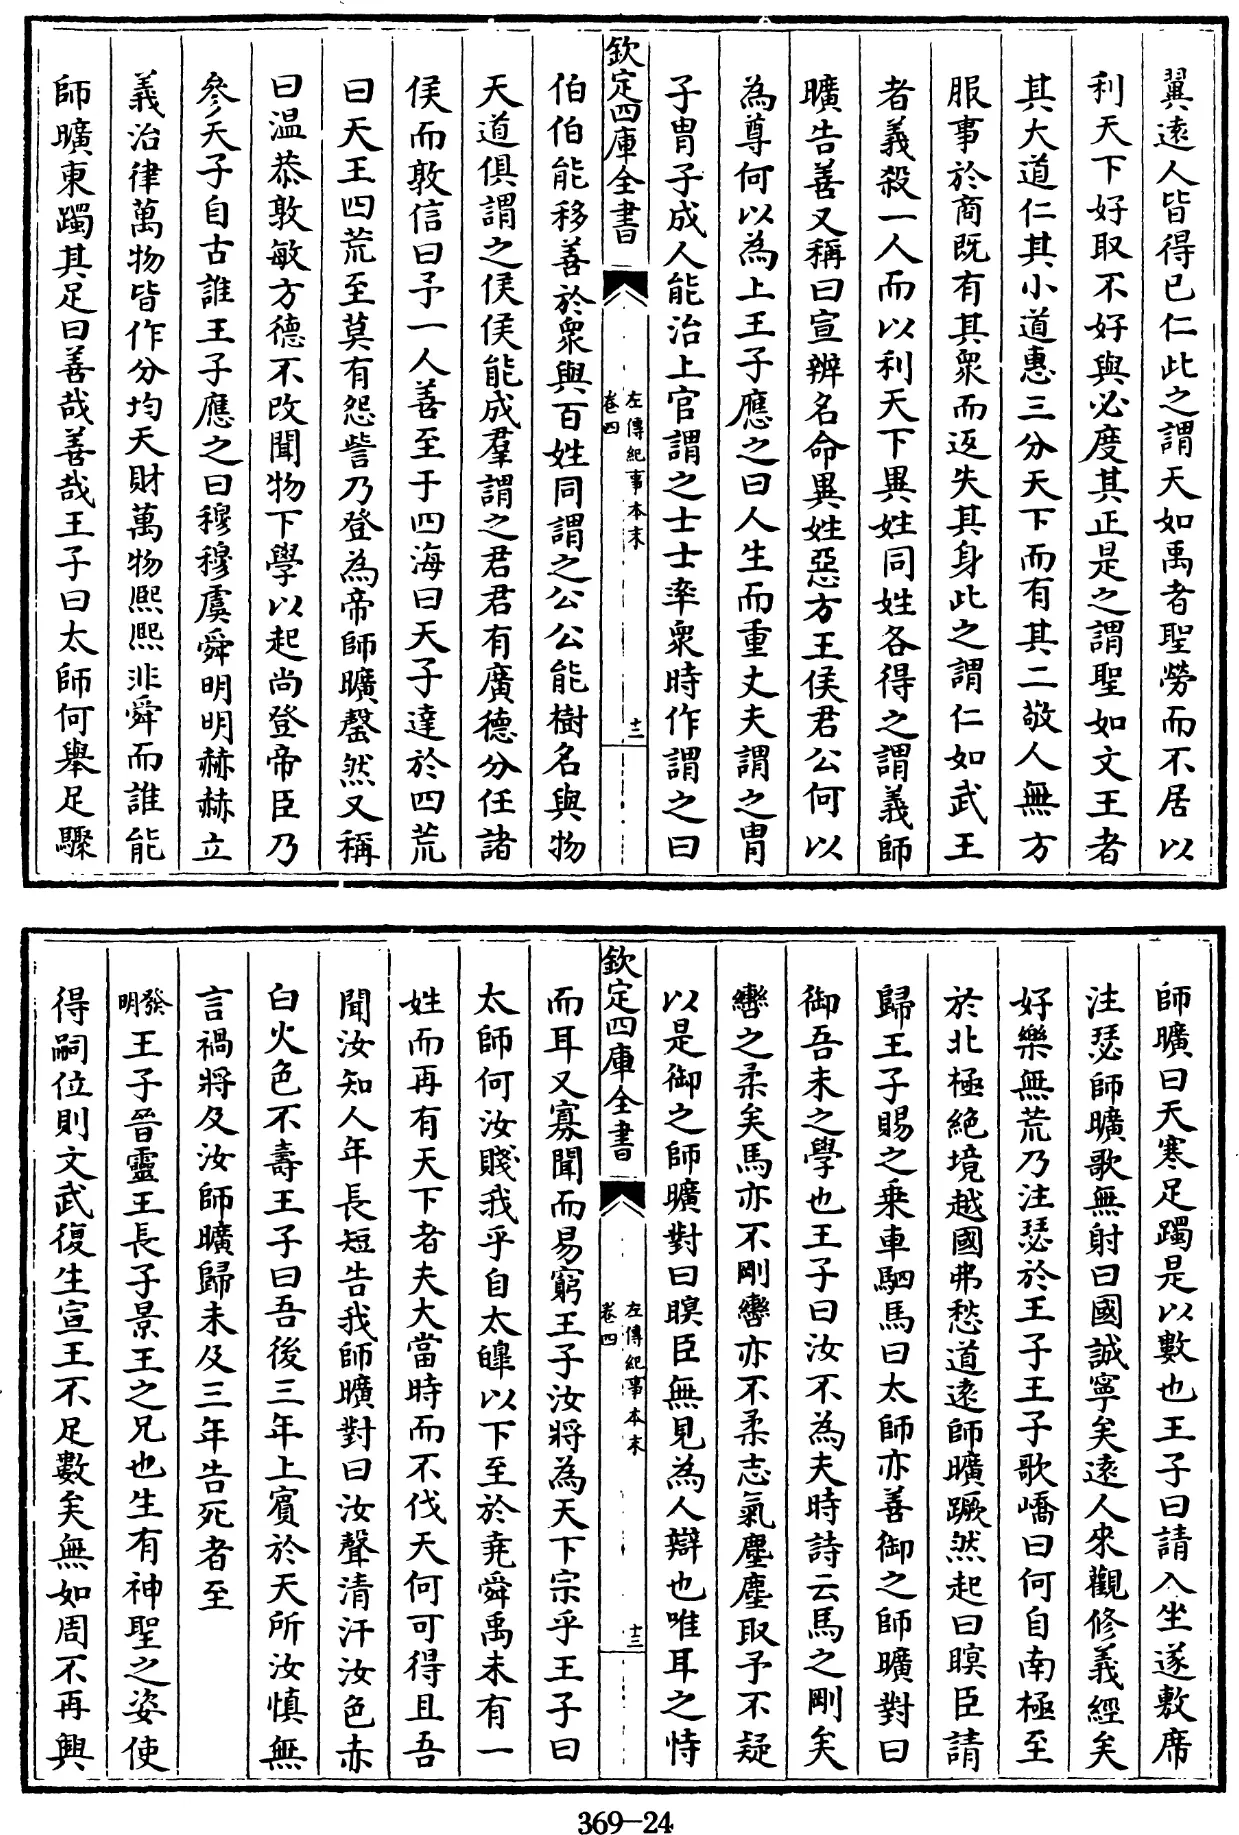 翼遠人皆得已仁此之謂天如禹者聖勞而不居以
利天下好取不好與必度其正是之謂聖如文王者
其大道仁其小道惠三分天下而有其二敬人無方
服事於商既有其衆而返失其身此之謂仁如武王
者義殺一人而以利天下異姓同姓各得之謂義師
曠告善又稱曰宣辨名命異姓惡方王侯君公何以
為尊何以為上王子應之曰人生而重丈夫謂之胄
子胄子成人能治上官謂之士士率衆時作謂之曰
欽定四庫全書
左傳紀事本末
卷四
十二
伯伯能移善於衆與百姓同謂之公公能樹名與物
天道俱謂之侯侯能成羣謂之君君有廣德分任諸
侯而敦信曰予一人善至于四海曰天子達於四荒
曰天王四荒至莫有怨訾乃登為帝師曠罄然又稱
曰溫恭敦敏方德不改聞物下學以起尚登帝臣乃
參天子自古誰王子應之曰穆穆虞舜明明赫赫立
義治律萬物皆作分均天財萬物熙熙非舜而誰能
師曠東躅其足曰善哉善哉王子曰太師何舉足驟
師曠曰天寒足躅是以數也王子曰請入坐遂敷席
注瑟師曠歌無射曰國誠寧矣遠人來觀修義經矣
好樂無荒乃注瑟於王子王子歌嶠曰何自南極至
於北極絶境越國弗愁道遠師曠蹶然起曰瞑臣請
歸王子賜之乗車駟馬曰太師亦善御之師曠對曰
御吾未之學也王子曰汝不為夫時詩云馬之剛矣
轡之柔矣馬亦不剛轡亦不柔志氣塵塵取予不疑
以是御之師曠對曰瞑臣無見為人辯也唯耳之恃
欽定四庫全書
左傳紀事本末
卷四
十三
而耳又寡聞而易窮王子汝將為天下宗乎王子曰
太師何汝賤我乎自太皥以下至於堯舜禹未有一
姓而再有天下者夫大當時而不伐天何可得且吾
聞汝知人年長短告我師曠對曰汝聲清汗汝色赤
白火色不壽王子曰吾後三年上賓於天所汝慎無
言禍將及汝師曠歸未及三年告死者至
發明王子晉靈王長子景王之兄也生有神聖之姿使
得嗣位則文武復生宣王不足數矣無如周不再興
369—24